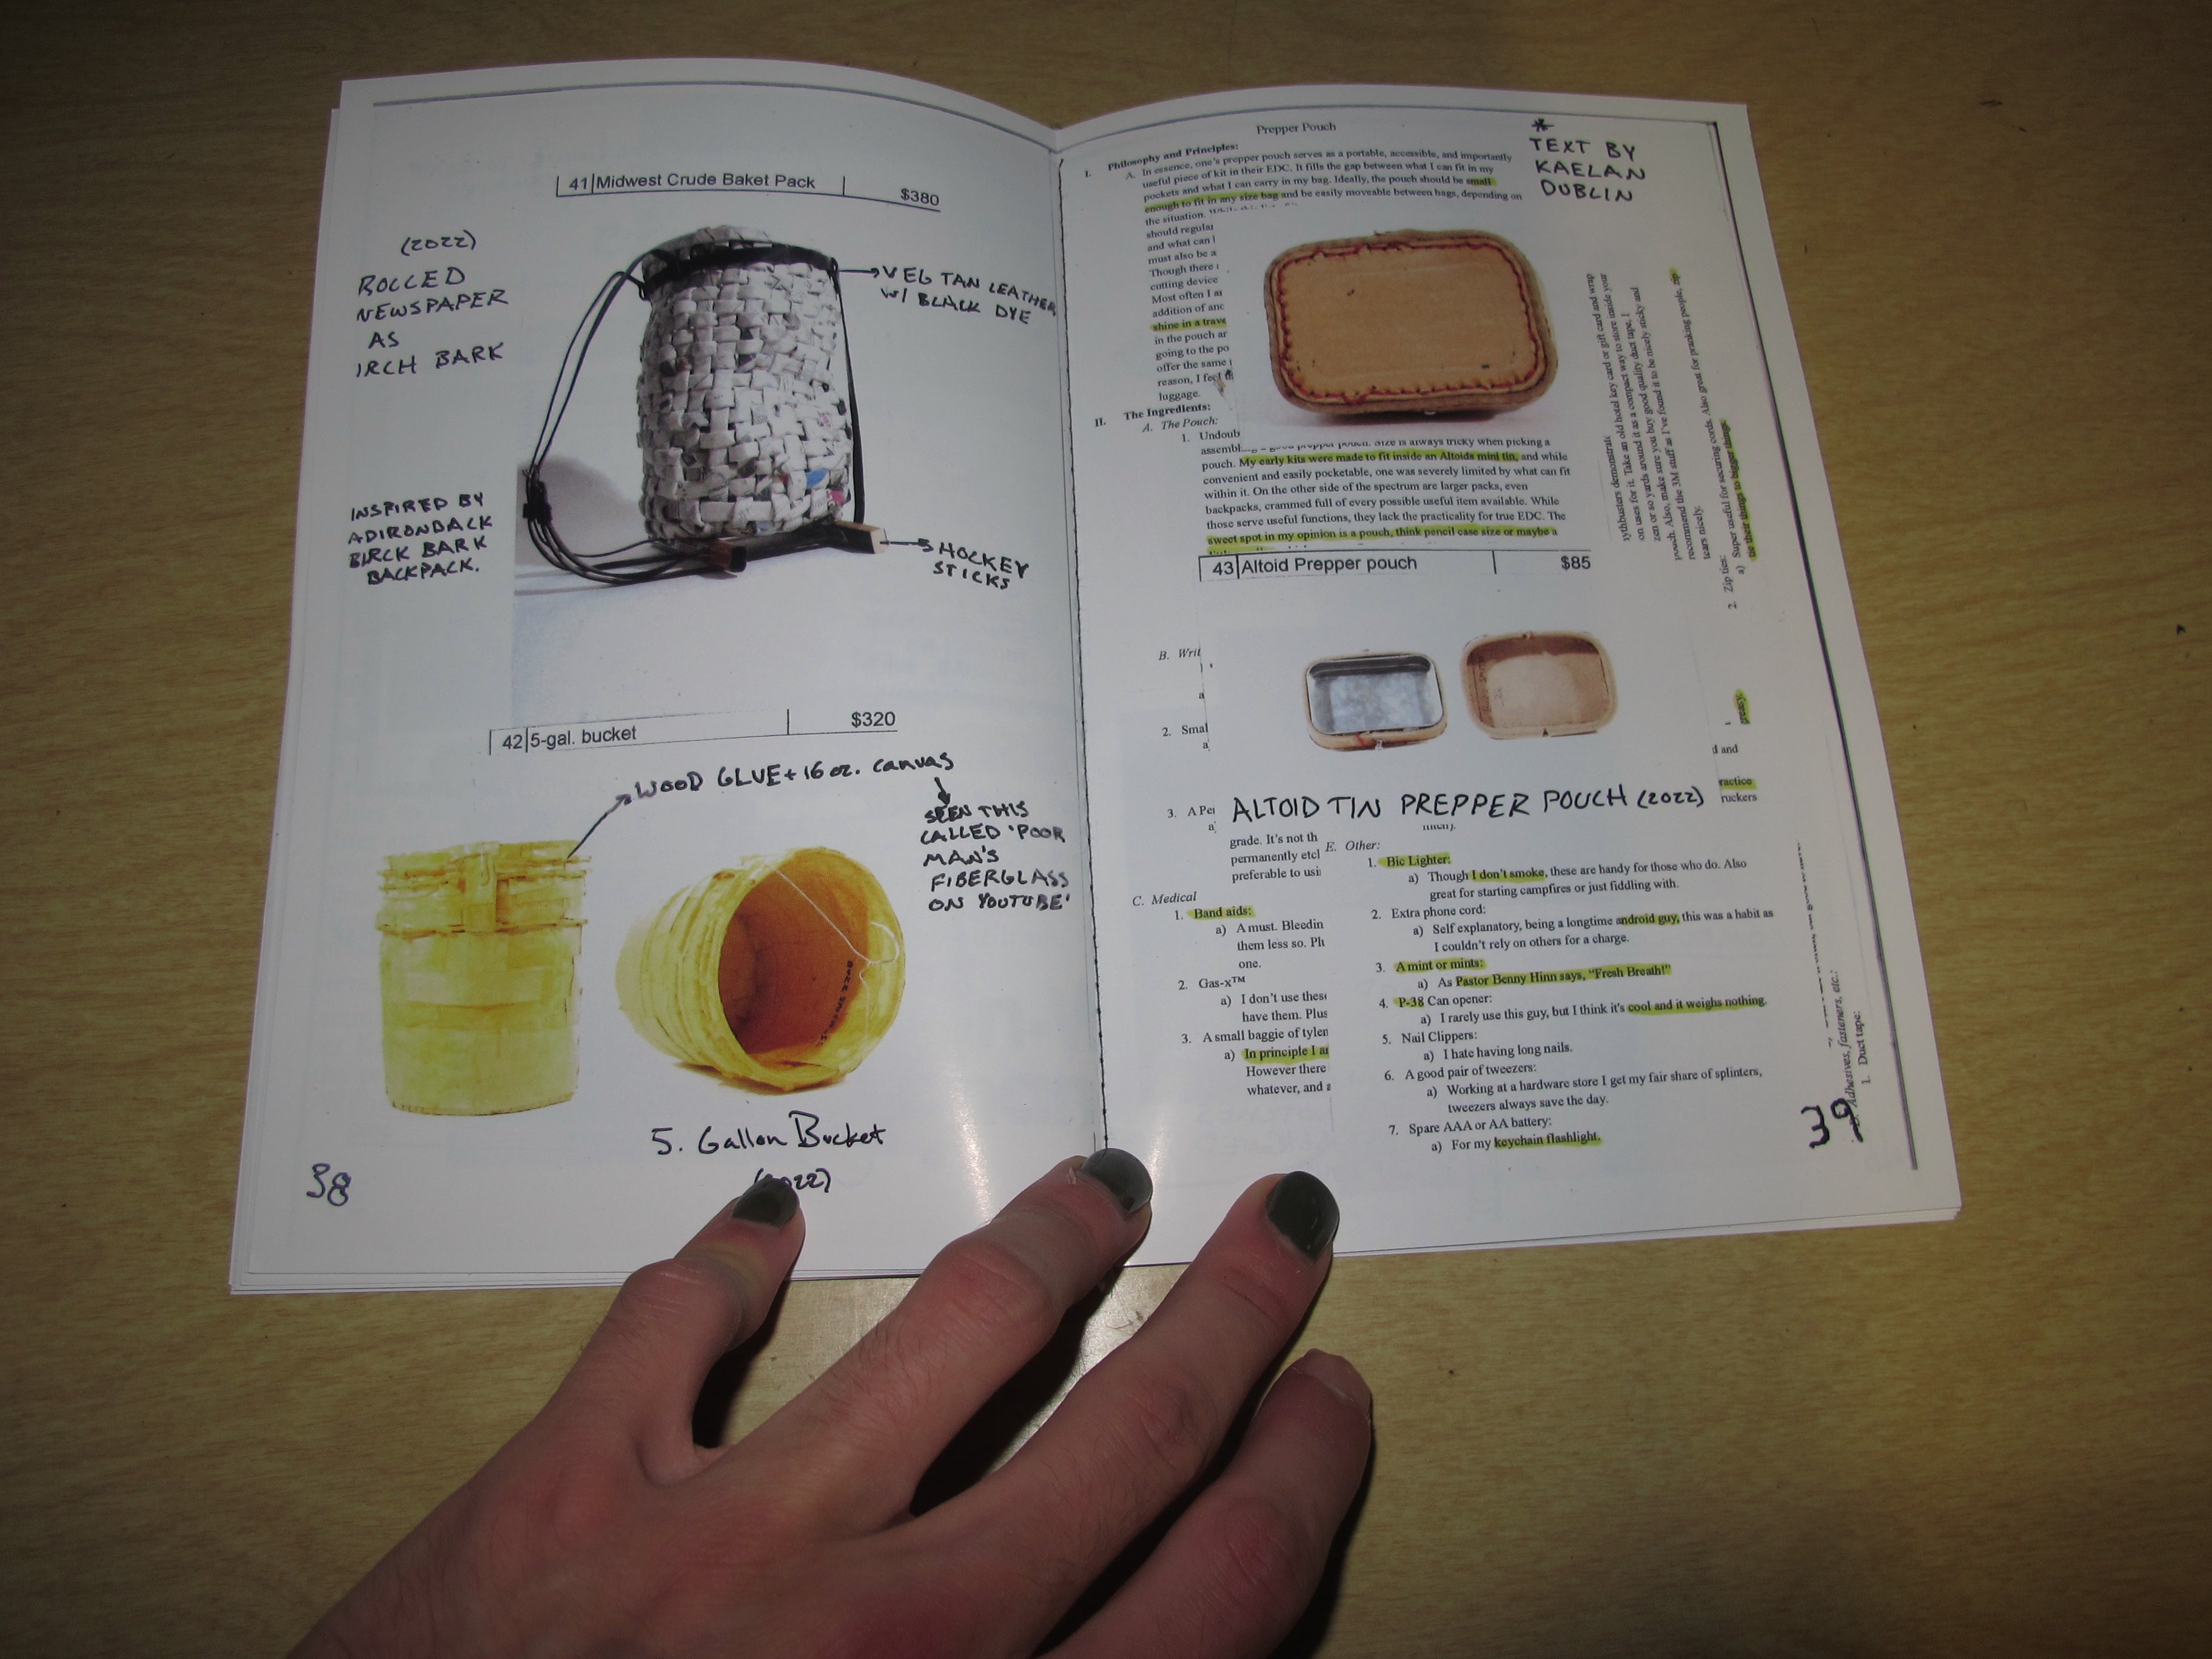 41 Midwest Crude Baket Pack $380
(2022)
ROLLED
NEWSPAPER
AS
IRCH BARK
VEG TAN LEATHER
W/ BLACK DYE
INSPIRED BY
ADIRONDACK
BIRCK BARK
BACKPACK.
HOCKEY
STICKS
42 5-gal. bucket $320
WOOD GLUE + 16 oz. canvas
SEEN THIS
CALLED 'POOR
MAN'S
FIBERGLASS
ON YOUTUBE'
5. Gallon Bucket
38
Prepper Pouch
*
TEXT BY
KAELAN
DUBLIN
I. Philosophy and Principles:
A. In essence, one's prepper pouch serves as a portable, accessible, and importantly
useful piece of kit in their EDC. It fills the gap between what I can fit in my
pockets and what I can carry in my bag. Ideally, the pouch should be small
enough to fit in any size bag and be easily moveable between bags, depending on
the situation.
should regular
and what can I
must also be a
Though there
cutting device
Most often I
addition of
shine in a
in the pouch
going to the
offer the same
reason, I feel
luggage.
II. The Ingredients:
A. The Pouch:
1. Undoub
assembl
pouch. Size is always tricky when picking a
pouch. My early kits were made to fit inside an Altoids mini tin, and while
convenient and easily pocketable, one was severely limited by what can fit
within it. On the other side of the spectrum are larger packs, even
backpacks, crammed full of every possible useful item available. While
those serve useful functions, they lack the practicality for true EDC. The
sweet spot in my opinion is a pouch, think pencil case size or maybe a
43 Altoid Prepper pouch $85
B. Writ
a
2. Smal
a
3. A Pe
a
ALTOID TIN PREPPER POUCH (2022)
grade. It's not th
permanently etc
preferable to usi
C. Medical
1. Band aids:
a) A must. Bleedin
them less so. Ph
one.
2. Gas-x™
a) I don't use these
have them. Plus
3. A small baggie of tylen
a) In principle I
However there
whatever, and
E. Other:
1. Bic Lighter:
a) Though I don't smoke, these are handy for those who do. Also
great for starting campfires or just fiddling with.
2. Extra phone cord:
a) Self explanatory, being a longtime android guy, this was a habit as
I couldn't rely on others for a charge.
3. A mint or mints:
a) As Pastor Benny Hinn says, "Fresh Breath!"
4. P-38 Can opener:
a) I rarely use this guy, but I think it's cool and it weighs nothing.
5. Nail Clippers:
a) I hate having long nails.
6. A good pair of tweezers:
a) Working at a hardware store I get my fair share of splinters,
tweezers always save the day.
7. Spare AAA or AA battery:
a) For my keychain flashlight.
ythbusters demonstrate
on uses for it. Take an old hotel key card or gift card and wrap
zen or so yards around it as a compact way to store inside your
pouch. Also, make sure you buy good quality duct tape, I
recommend the 3M stuff as I've found it to be nicely sticky and
tears nicely.
2. Zip ties:
a) Super useful for securing cords. Also great for pranking people, zip
tie their things to bigger things.
greasy.
d and
ractice
ruckers
Adhesives, fasteners, etc.:
1. Duct tape:
39